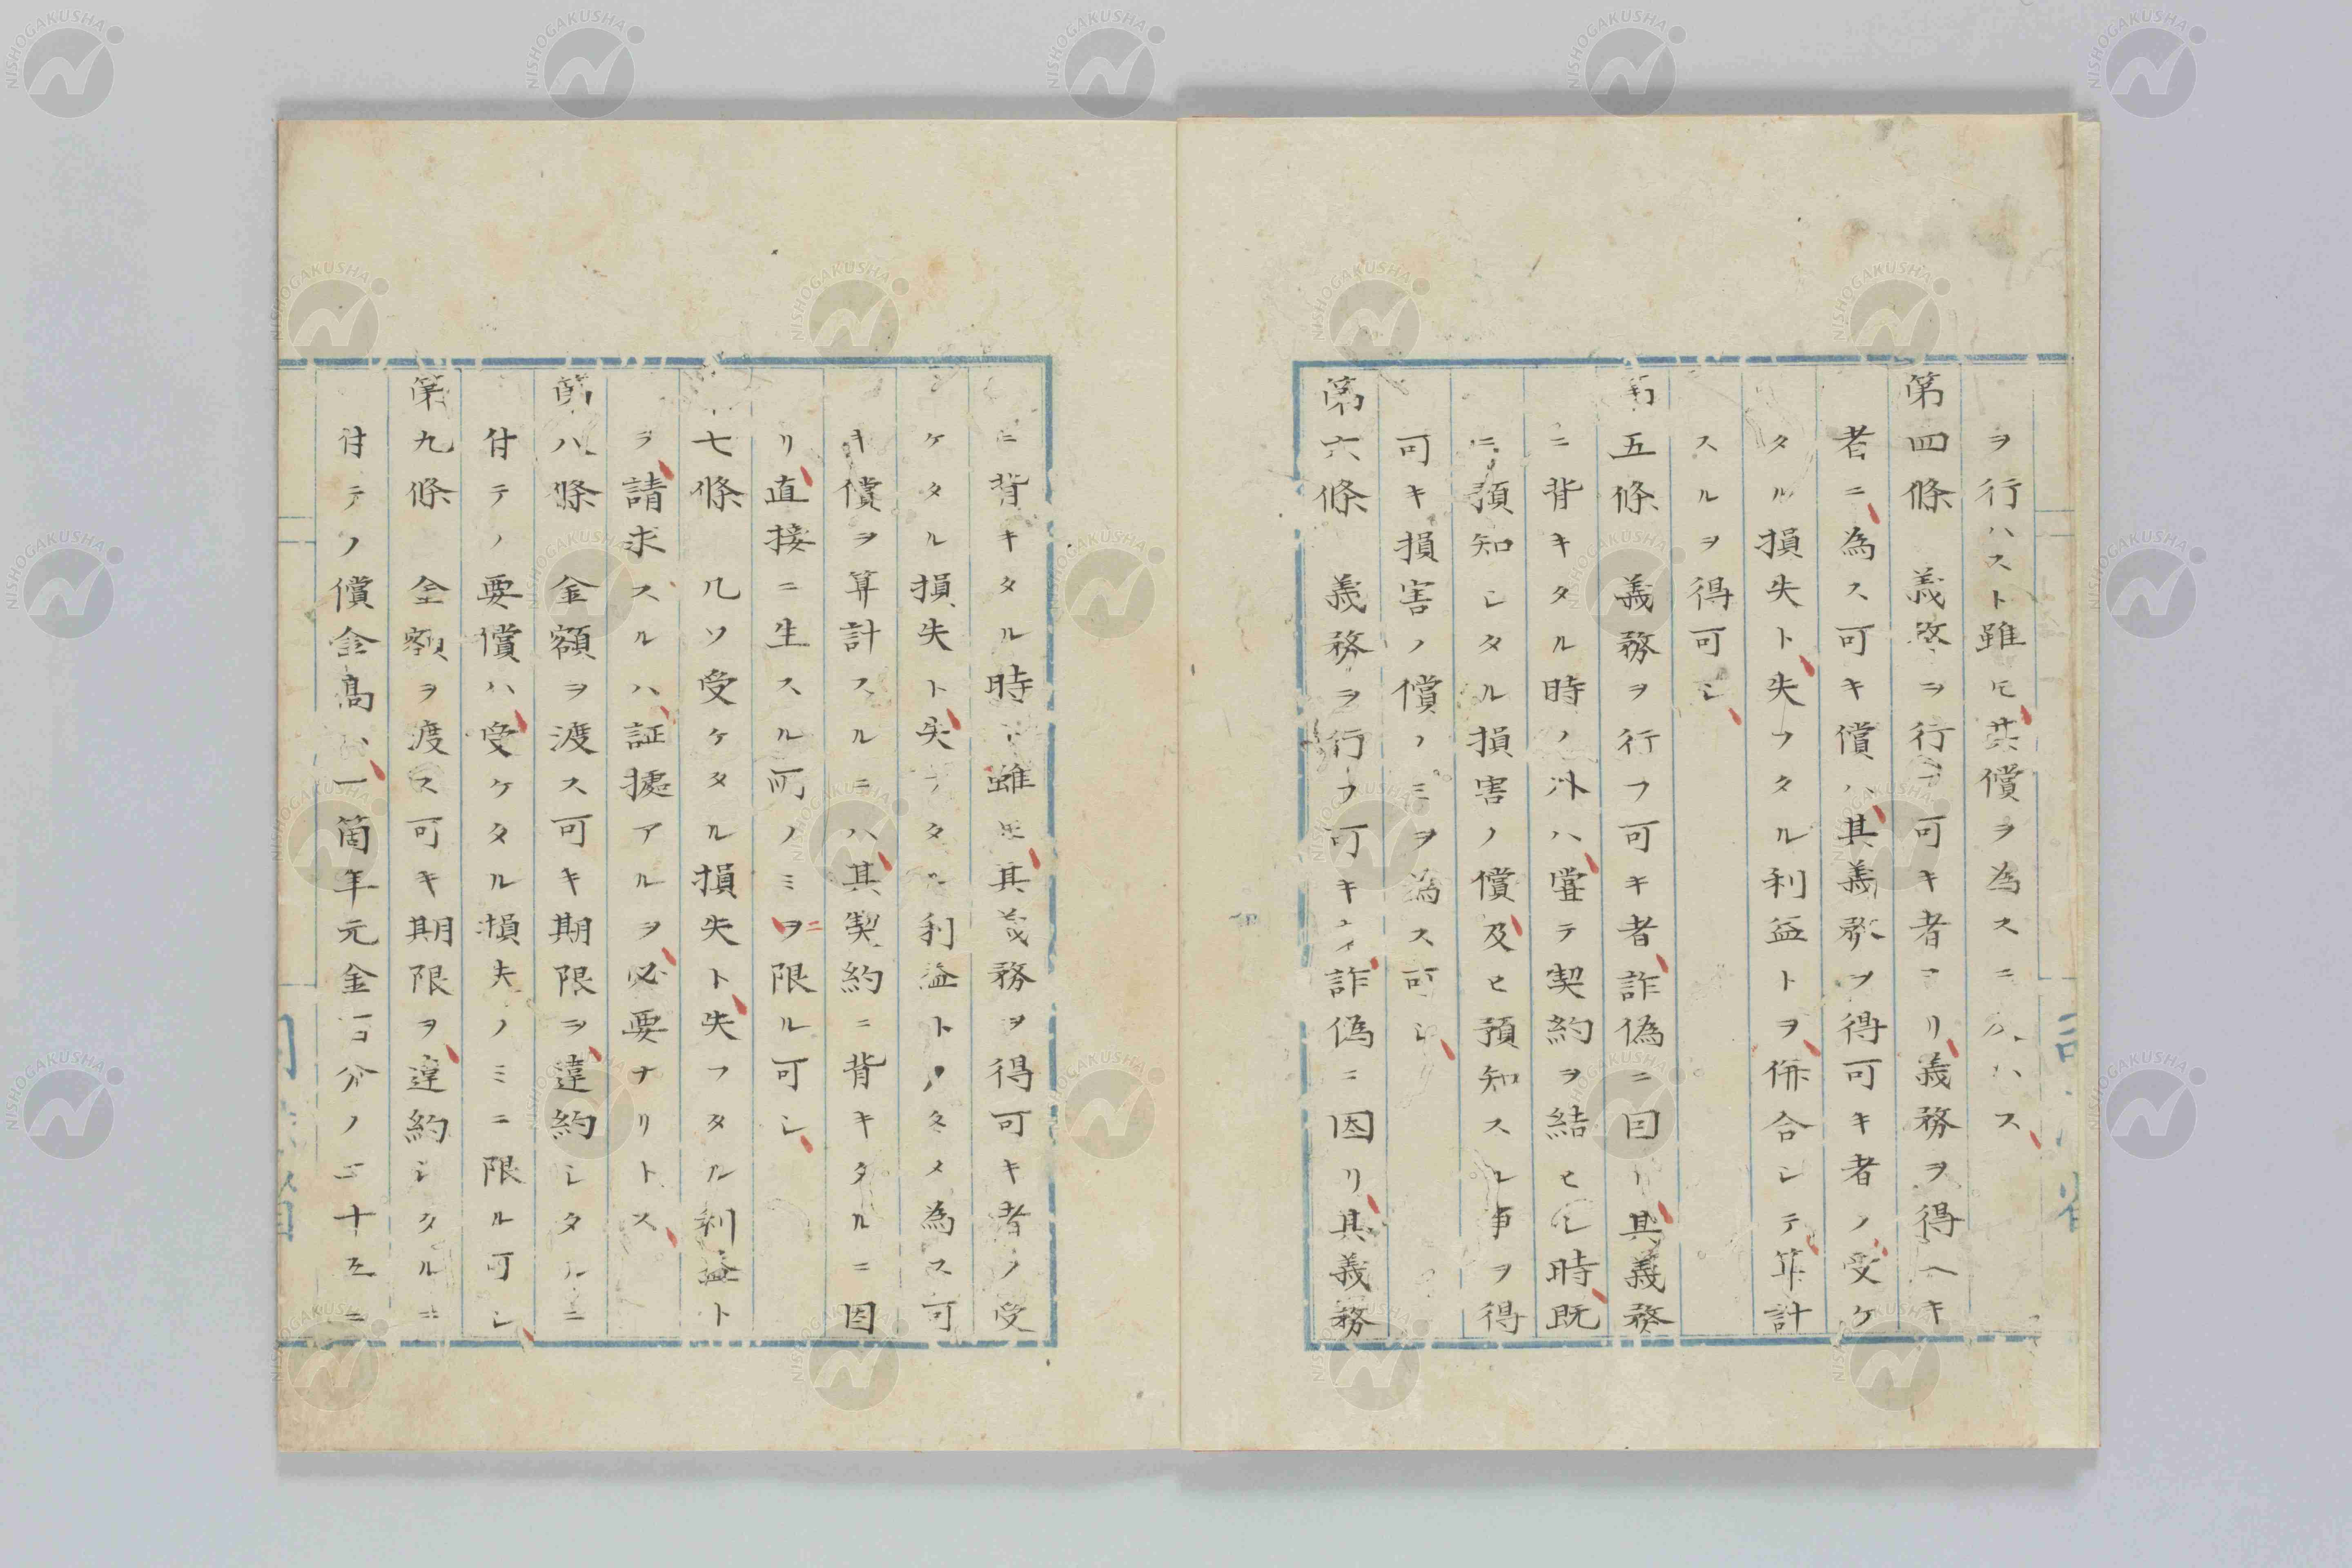 ヲ行ハスト雖𪜈其償ヲ為スニ及ハス
第四條　義務ヲ行フ可キ者ヨリ義務ヲ得ヘキ
者ニ為ス可キ償ハ其義務ヲ得可キ者ノ受ケ
タル損失ト失フタル利益トヲ併合シテ算計
スルヲ得可シ
第五條　義務ヲ行フ可キ者詐偽ニ因リ其義務
ニ背キタル時ノ外ハ嘗テ契約ヲ結ヒシ時既
ニ預知シタル損害ノ償及ヒ預知スル事ヲ得
可キ損害ノ償ノミヲ為ス可シ
第六條　義務ヲ行フ可キ者詐偽ニ因リ其義務
ニ背キタル時ト雖𪜈其義務ヲ得可キ者ノ受
ケタル損失ト失フタル利益トノタメ為ス可
キ償ヲ算計スルニハ其契約ニ背キタルニ因
リ直接ニ生スル所ノミヲニ限ル可シ
七條　凡ソ受ケタル損失ト失フタル利益ト
ヲ請求スルハ証拠アルヲ必要ナリトス
第八條　金額ヲ渡ス可キ期限ヲ違約シタルニ
付テノ要償ハ受ケタル損失ノミニ限ル可シ
第九條　金額ヲ渡ス可キ期限ヲ違約シタルニ
付テノ償金高ハ一箇年元金百分ノ二十五ニ
NISHOGAKUSHA